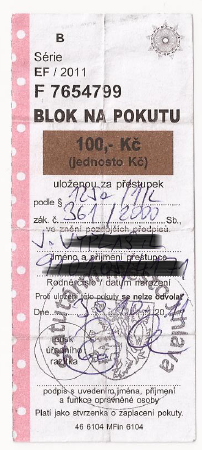 B
Série
EF / 2011
F 7654799
BLOK NA POKUTU
100,- Kč
(jednosto Kč)
uloženou za přestupek
podle §
zák. č. 361/2000 Sb.,
ve znění pozdějších předpisů.
Jméno a příjmení přestupce
Rodné číslo / datum narození
Proti uložení této pokuty se nelze odvolat
Dne 20
otisk
úředního
razítka
podpis s uvedením jména, příjmení
a funkce oprávněné osoby
Platí jako stvrzenka o zaplacení pokuty.
46 6104 MFin 6104